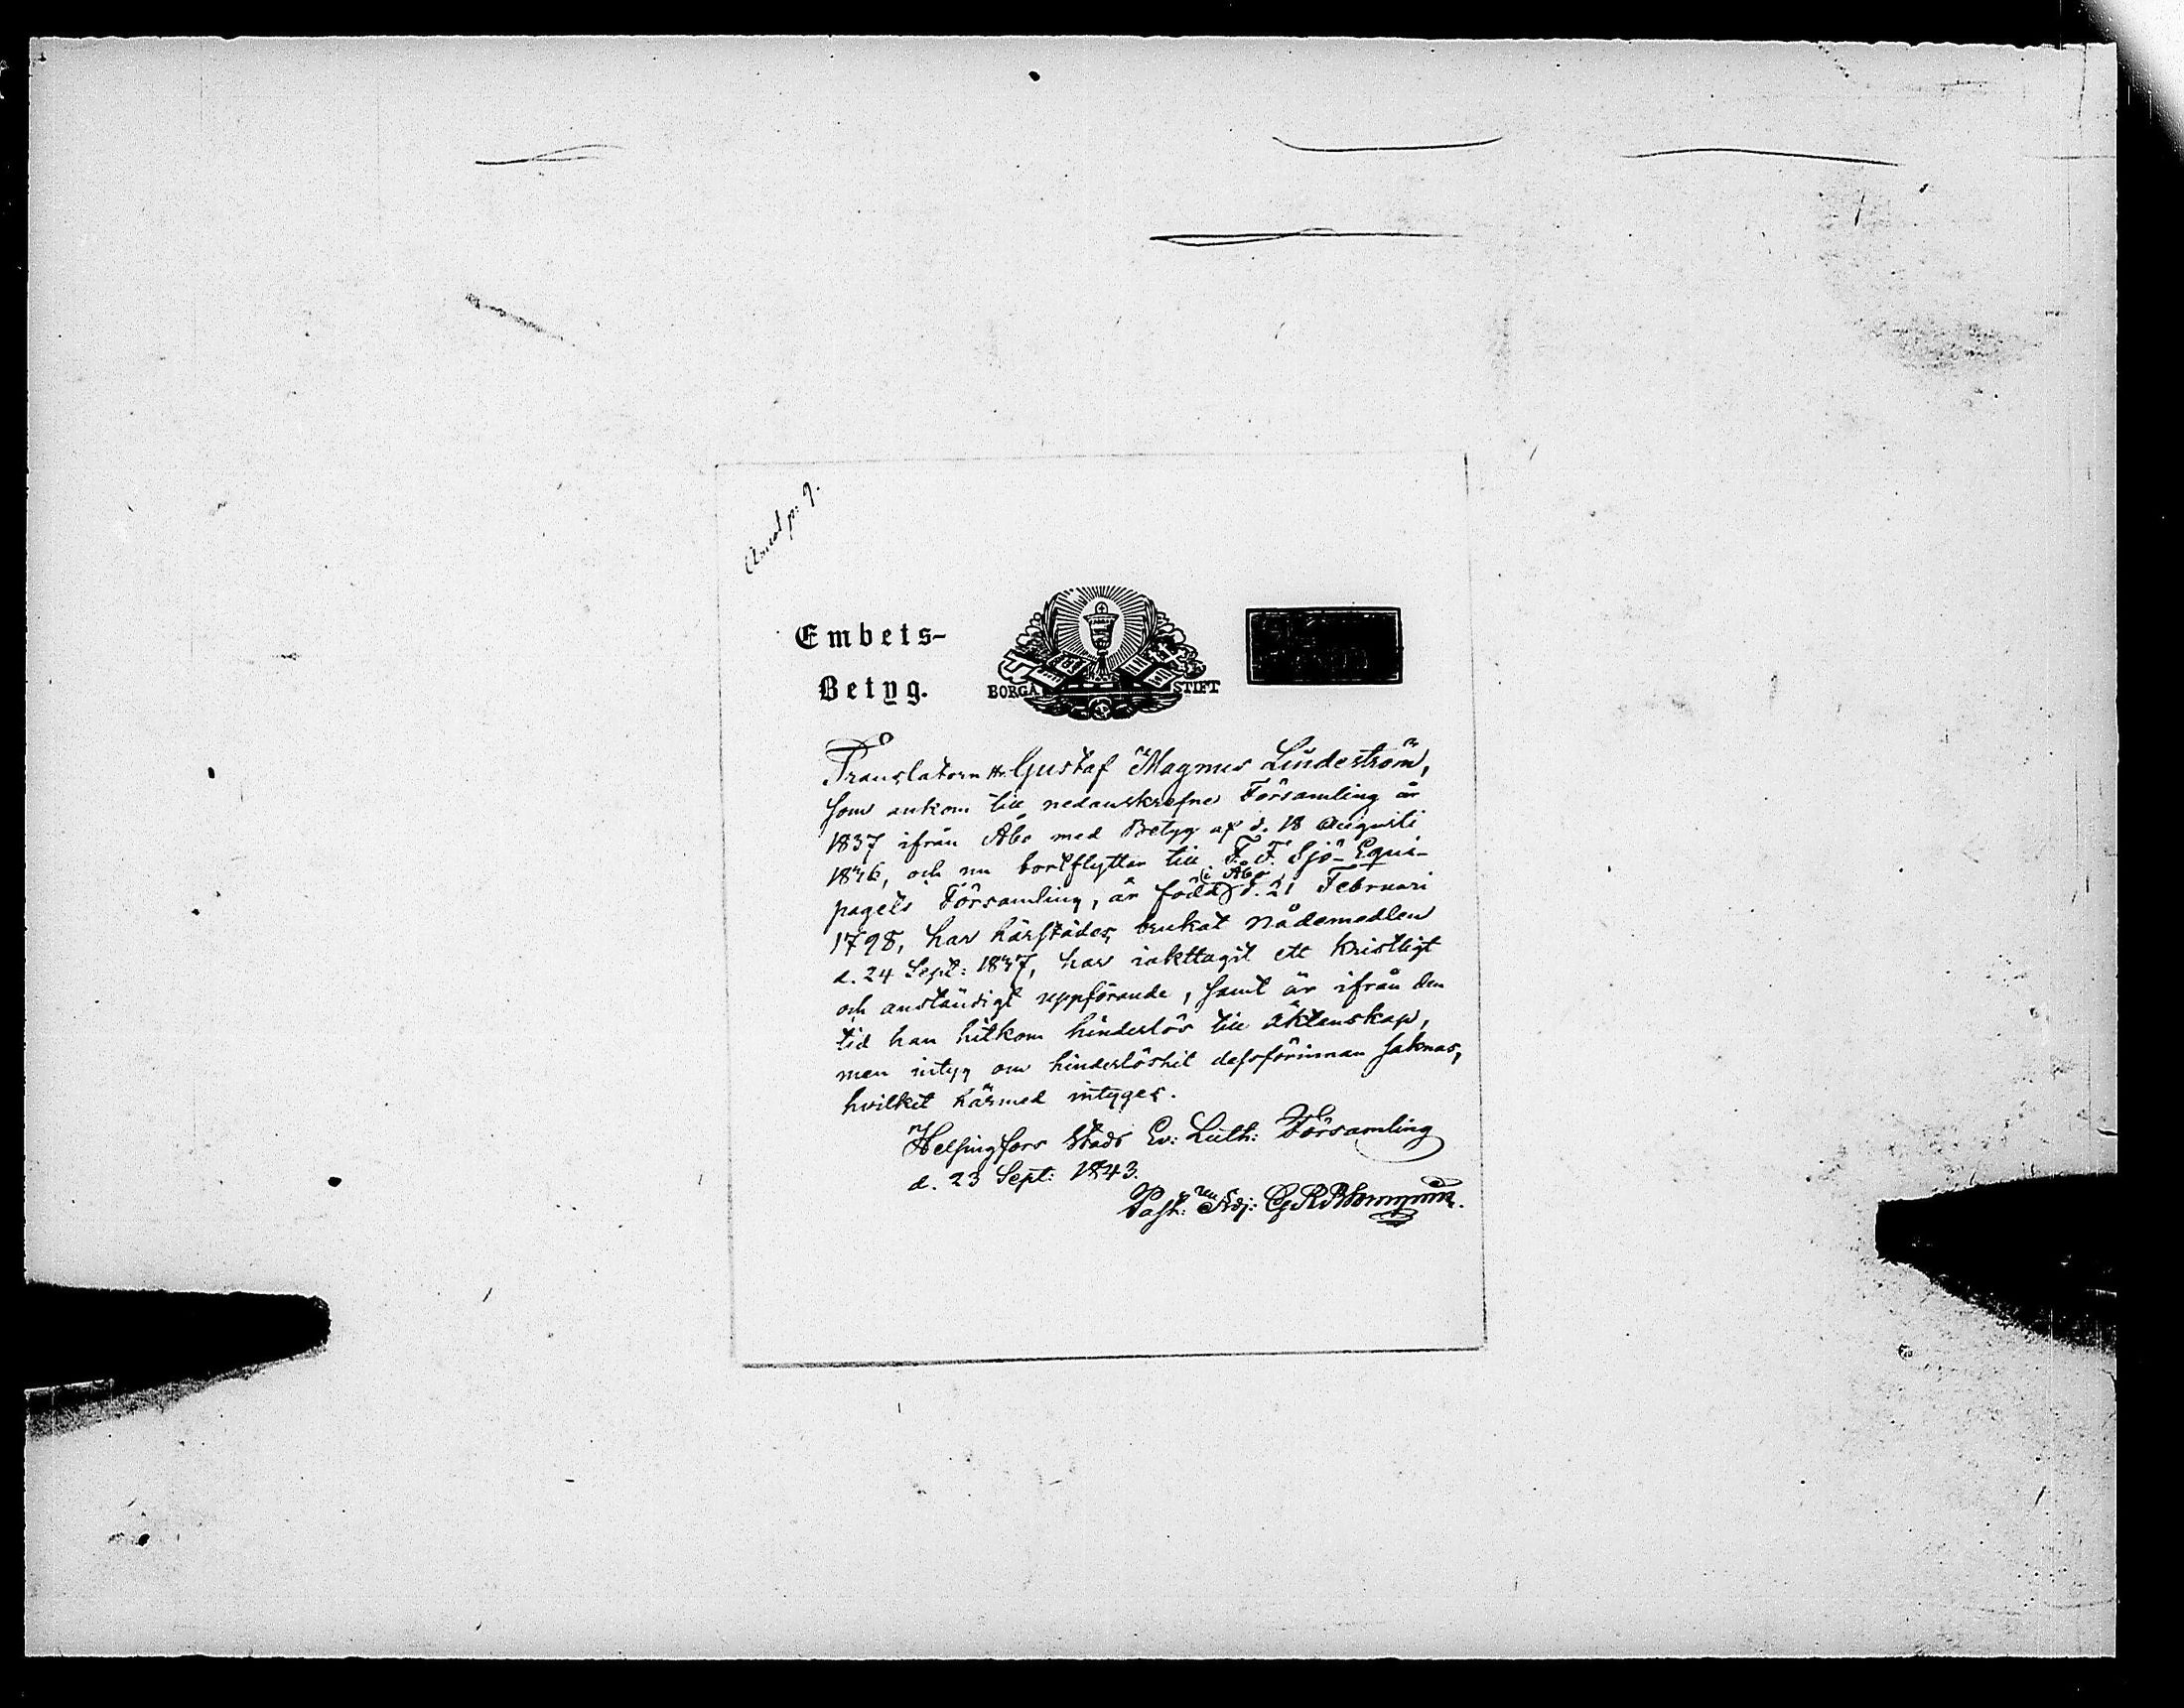 Embets-
Betyg.
BORGÅ STIFT
Translatorn Hr. Gustaf Magnus Lindeström,
som ankom till nedanskrefne Församling år
1837 ifrån Åbo med Betyg af d. 18 Augusti
1836, och nu bortflyttar till F. F. Sjö-Equi-
pagets Församling, är född (i Åbo) d. 21 Februari
1798, har härstädes brukat Nådemedlen
d. 24 Sept: 1837, har iakttagit ett Kristligt
och anständigt uppförande, samt är ifrån den
tid han hitkom hinderlös till Äktenskap,
men intyg om hinderlöshet dessförinnan saknas,
hvilket härmed intygas.
Helsingfors Stads Ev: Luth: Församling
d. 23 Sept: 1843.
Past: Adj: